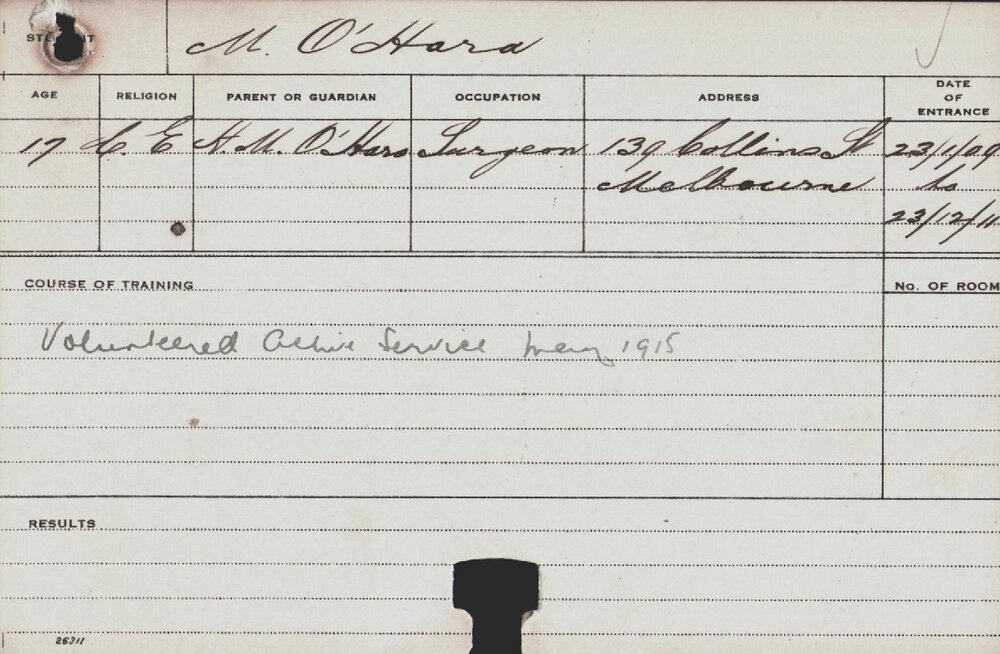 STUDENT M. O'Hara
AGE RELIGION PARENT OR GUARDIAN OCCUPATION ADDRESS DATE OF ENTRANCE
17 C. E H. M. O'Hara Surgeon 139 Collins St 23/1/09
Melbourne to
23/12/11
COURSE OF TRAINING No. OF ROOM
Volunteered Active Service May 1915
RESULTS
26311